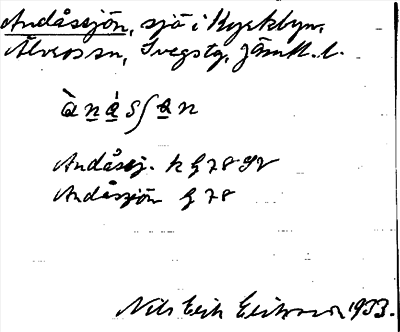 Andåssjön, sjö i Kyrkbyn,
Älvros sn, Svegs tg, Jämtl. l.
ànásʃan
Andåsej. k G 78 SV
Andåssjön G 78
Nils Erik Eriksson 1933.